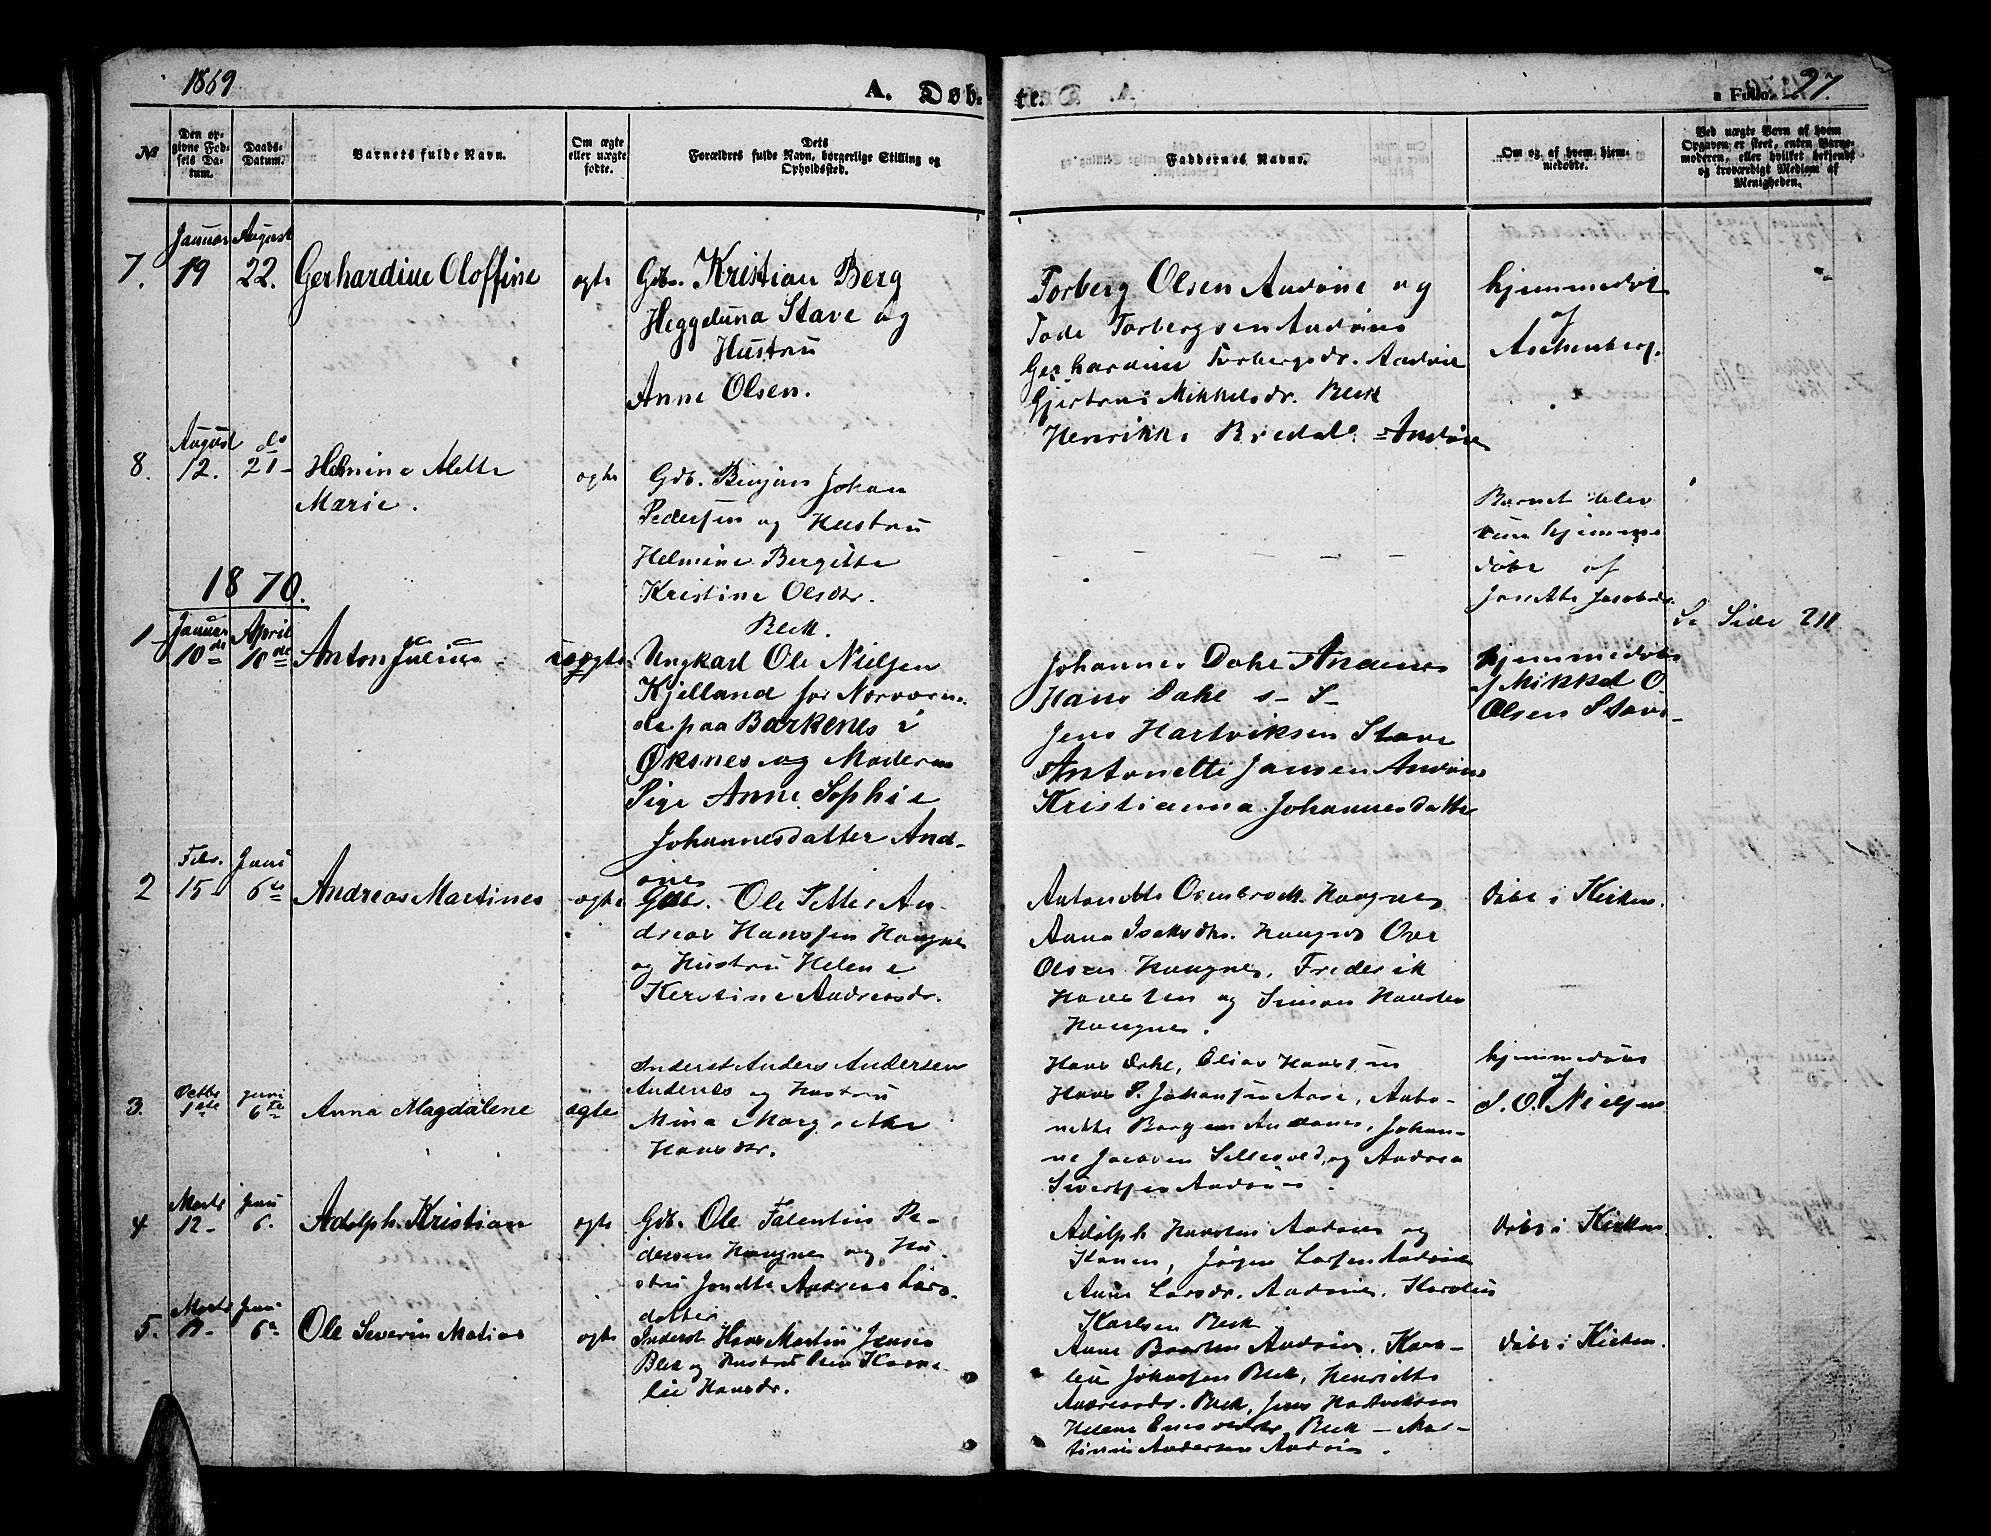 1869
A. Døb-
te.
a Folio. 97.
№
Den op-
givne Fød-
sels Da-
tum.
Daabs-
Datum.
Barnets fulde Navn.
Om ægte
eller uægte
fødte.
Dets
Forældres fulde Navn, borgerlige Stilling og
Opholdssted.
Faddernes Navne.
Om og af hvem hjem-
medøbte.
Ved uægte Børn af hvem
Opgaven er skeet, enten Barne-
moderen, eller hvilket bekjendt
og troværdigt Medlem af
Menigheden.
7.
Januar
19
August
22.
Gerhardine Oloffine
ægte
Gdb. Kristian Berg
Heggeluna Stave og
Hustru
Anne Olsen.
Torberg Olsen Andønes og
Tode Torbergsen Andønes
Gerhardine Torbergsdr. Andønes
Mikkelsdr. Blek
Henrikke Bredal Andønes
hjemmedøbt
af
Aschenberg.
8.
August
12.
do
21
Helmine Alette
Marie.
ægte
Gdb. Benjam Johan
Pedersen og Hustru
Helmine Bergitte
Kristine Olsdtr.
Blek.
Barnet blev
kun hjemme
døbt af
Jonette Jacobsdr.
1870.
1
Januar
10de
April
10de
Anton Julius
uægte
Ungkarl Ole Nielsen
Kjelland for Nærværn.
de paa Barkenes i
Øksnes og Moderen
Pige Anne Sophie
Johannesdatter And-
ønes
Johannes Dahl Andenes
Hans Dahl s- S-
Jens Hartviksen Stave
Antonette Jansen Andønes
Kristianna Johannesdatter
hjemmedøbt
af Mikkel O.
Olsen Stave
Se Side 211
2
Febr.
15
Juni
6te
Andreas Martines
ægte
Gdbr. Ole Petter An-
dreas Hanssen Haugnes
og Hustru Helene
Kerstine Andreasdr.
Antonette Ovesbrock Haugnes
Anna Isaksdtr. Haugnes Ove
Olsen Haugnes, Frederik
Hansen og Simon Hansen
Haugnes.
Døbt i Kirken.
3.
Octbr
1ste
Juni
6te
Anna Magdalene
ægte
Inderst Anders Andersen
Andenes og Hustru
Mina Margrethe
Hansdtr.
Hans Dahl, Elias Hanssen
Hans P. Johansen Aase, Anto-
nette Borgen Andenes, Johan-
ne Jacobsen Sellevold, og Andrea
Sivertsen Andønes.
hjemmedøbt
af
S. O. Nielsen
4
Marts
12
Juni
6.
Adolph Kristian
ægte
Gdb. Ole Falentin Pe-
dersen Haugnes og Hu-
stru Jonette Andrea Lars-
datter
Adolph Hansen Andønes og
Konen, Jørgen Larsen Andønes
Anne Larsdr. Andønes, Karolius
Karlsen Blek
Døbt i Kirken
5.
Marts
Juni
6te
Ole Severin Matias
ægte
Inderst Hans Martin Jensen
Blek og Hustru Karne-
lie Hansdr.
Anne Andønes, Karo-
line Johansen Blek, Henriette
Andreasdr. Blek, Jens Hartviksen
Helene Blek - Mar-
tinus Andersen Andønes.
Døbt i Kirken.